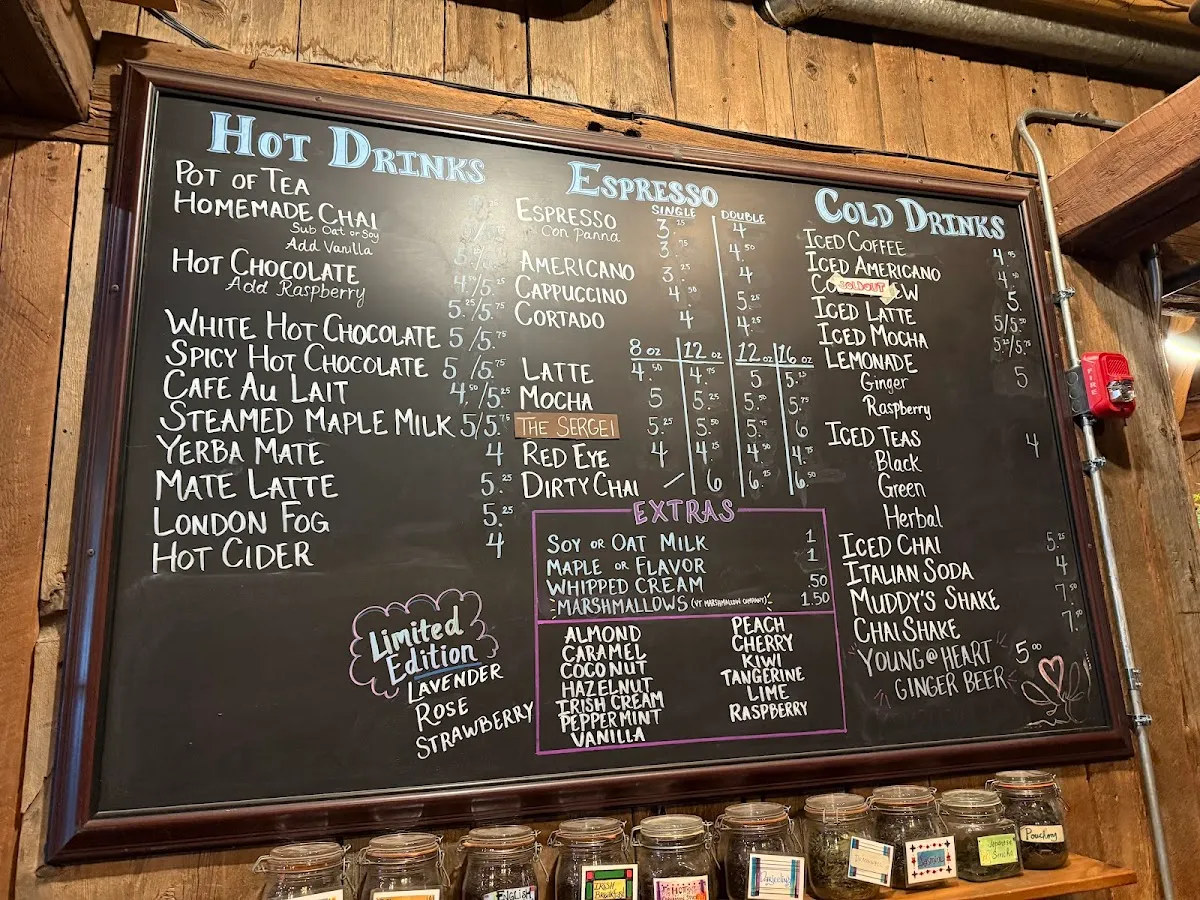 HOT DRINKS
POT OF TEA
HOMEMADE CHAI
SUB OAT OR SOY
ADD VANILLA
HOT CHOCOLATE 4.50/5.25
ADD RASPBERRY 5.25/5.75
WHITE HOT CHOCOLATE 5/5.75
SPICY HOT CHOCOLATE 5/5.75
CAFE AU LAIT 4.50/5.25
STEAMED MAPLE MILK 5/5.75
YERBA MATE 4
MATE LATTE 5.25
LONDON FOG 5.25
HOT CIDER 4
Limited Edition
LAVENDER
ROSE
STRAWBERRY
ESPRESSO
SINGLE DOUBLE
ESPRESSO 3.25 4
CON PANNA 3.75 4.50
AMERICANO 3.25 4
CAPPUCCINO 4.50 5.25
CORTADO 4 4.25
8 OZ 12 OZ 12 OZ 16 OZ
LATTE 4.50 4.75 5 5.25
MOCHA 5 5.25 5.50 5.75
THE SERGEI 5.25 5.50 5.75 6
RED EYE 4 4.25 4.50 4.75
DIRTY CHAI / 6 6.25 6.50
EXTRAS
SOY OR OAT MILK 1
MAPLE OR FLAVOR 1
WHIPPED CREAM .50
MARSHMALLOWS (VT MARSHMALLOW COMPANY) 1.50
ALMOND
CARAMEL
COCONUT
HAZELNUT
IRISH CREAM
PEPPERMINT
VANILLA
PEACH
CHERRY
KIWI
TANGERINE
LIME
RASPBERRY
COLD DRINKS
ICED COFFEE 4
ICED AMERICANO 4.50
SOLD OUT 5
ICED LATTE 5/5.50
ICED MOCHA 5.25/5.75
LEMONADE 5
Ginger
Raspberry
ICED TEAS 4
Black
Green
Herbal
ICED CHAI 5.25
ITALIAN SODA 4
MUDDY'S SHAKE 7.50
CHAI SHAKE 7.50
YOUNG @ HEART 5.00
GINGER BEER
FIRE
ENGLISH
IRISH